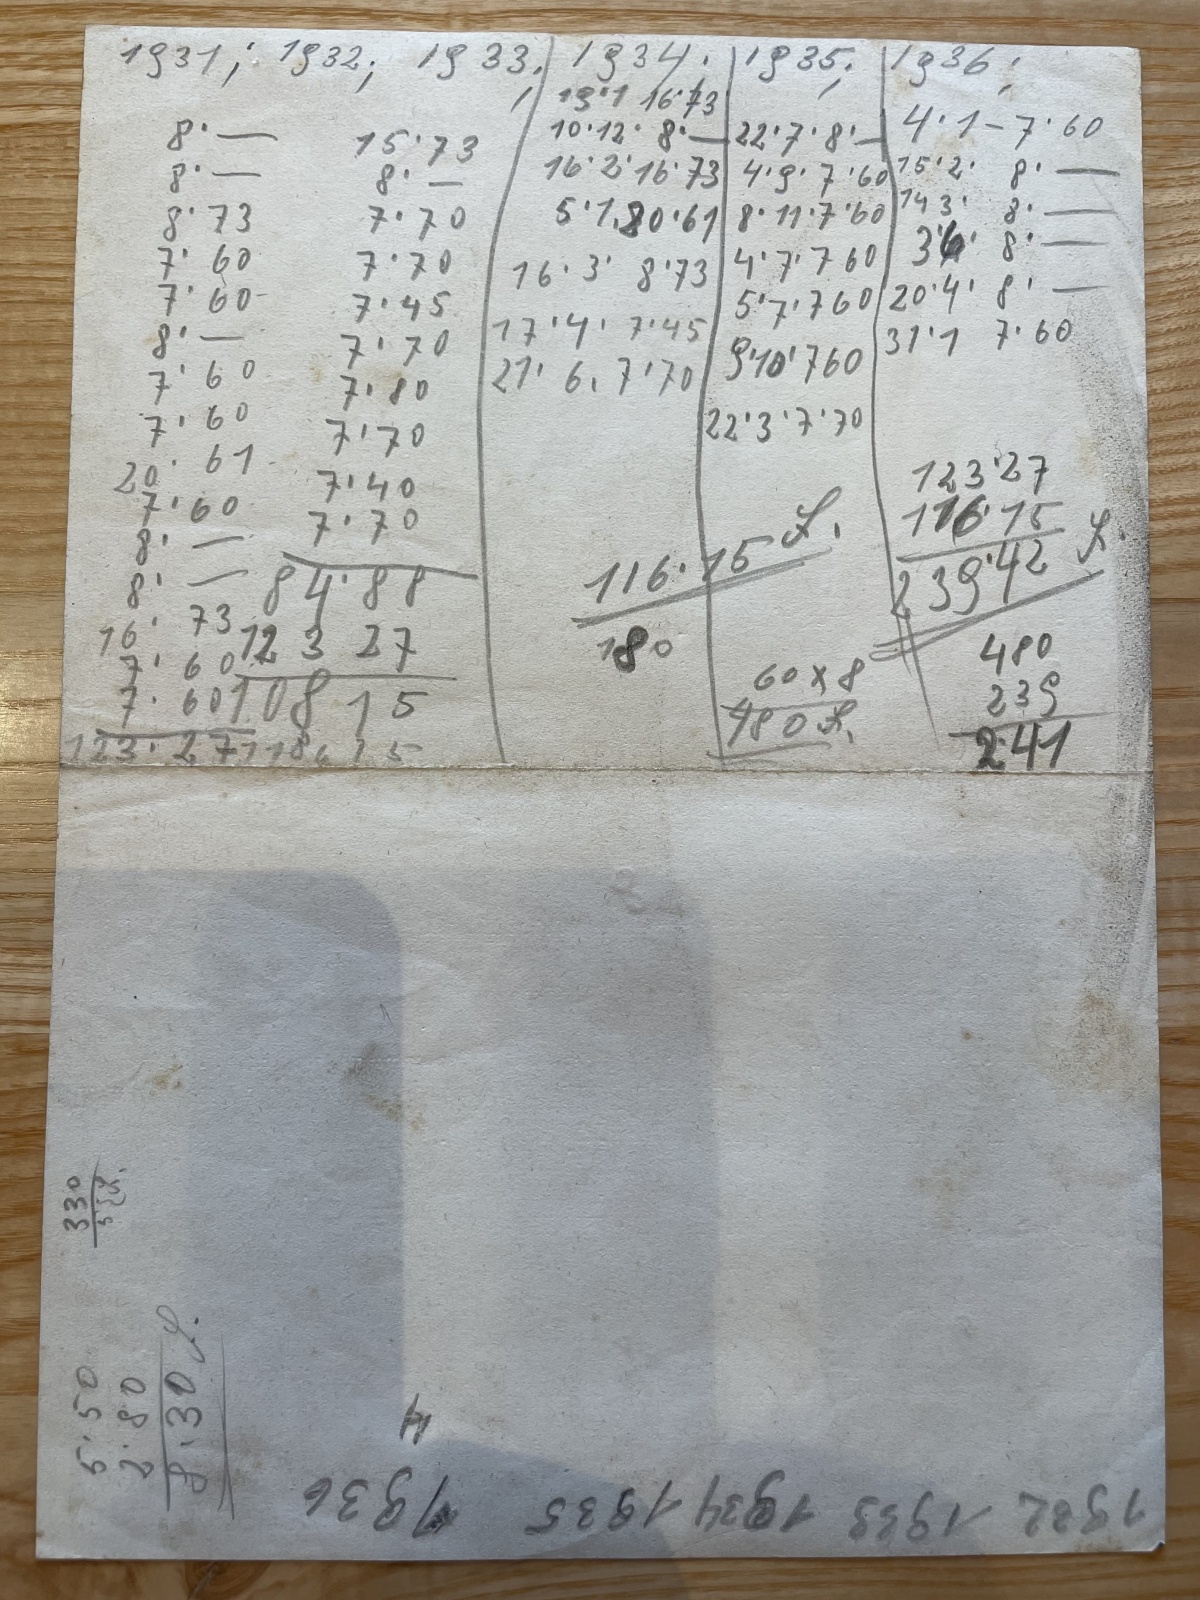 1931; 1932; 1933;
8·—
8·—
8·73
7·60
7·60
8·—
7·60
7·60
20·61
7·60
8·—
8·—
16·73
7·60
7·60
123·27
15·73
8·—
7·70
7·70
7·45
7·70
7·80
7·70
7·40
7·70
84·88
123 27
108 15
1934.
19·1 16·73
10·12· 8·—
16·2· 16·73
5·1. 20·61
16·3· 8·73
17·4· 7·45
21·6. 7·70
116·15 L.
180
1935;
22·7·8·—
4·9·7·60
8·11·7·60
4·7·7 60
5·7·7 60
9·10·760
22·3·7·70
60 x 8
480 L.
1936;
4·1 – 7·60
15·2· 8·—
14 3· 8·—
8·—
20·4· 8·—
31·1 7·60
123·27
116·15
239·42 L.
480
239
241
330
5·50
2·80
8·30 L.
4
1932 1933 1934 1935 1936